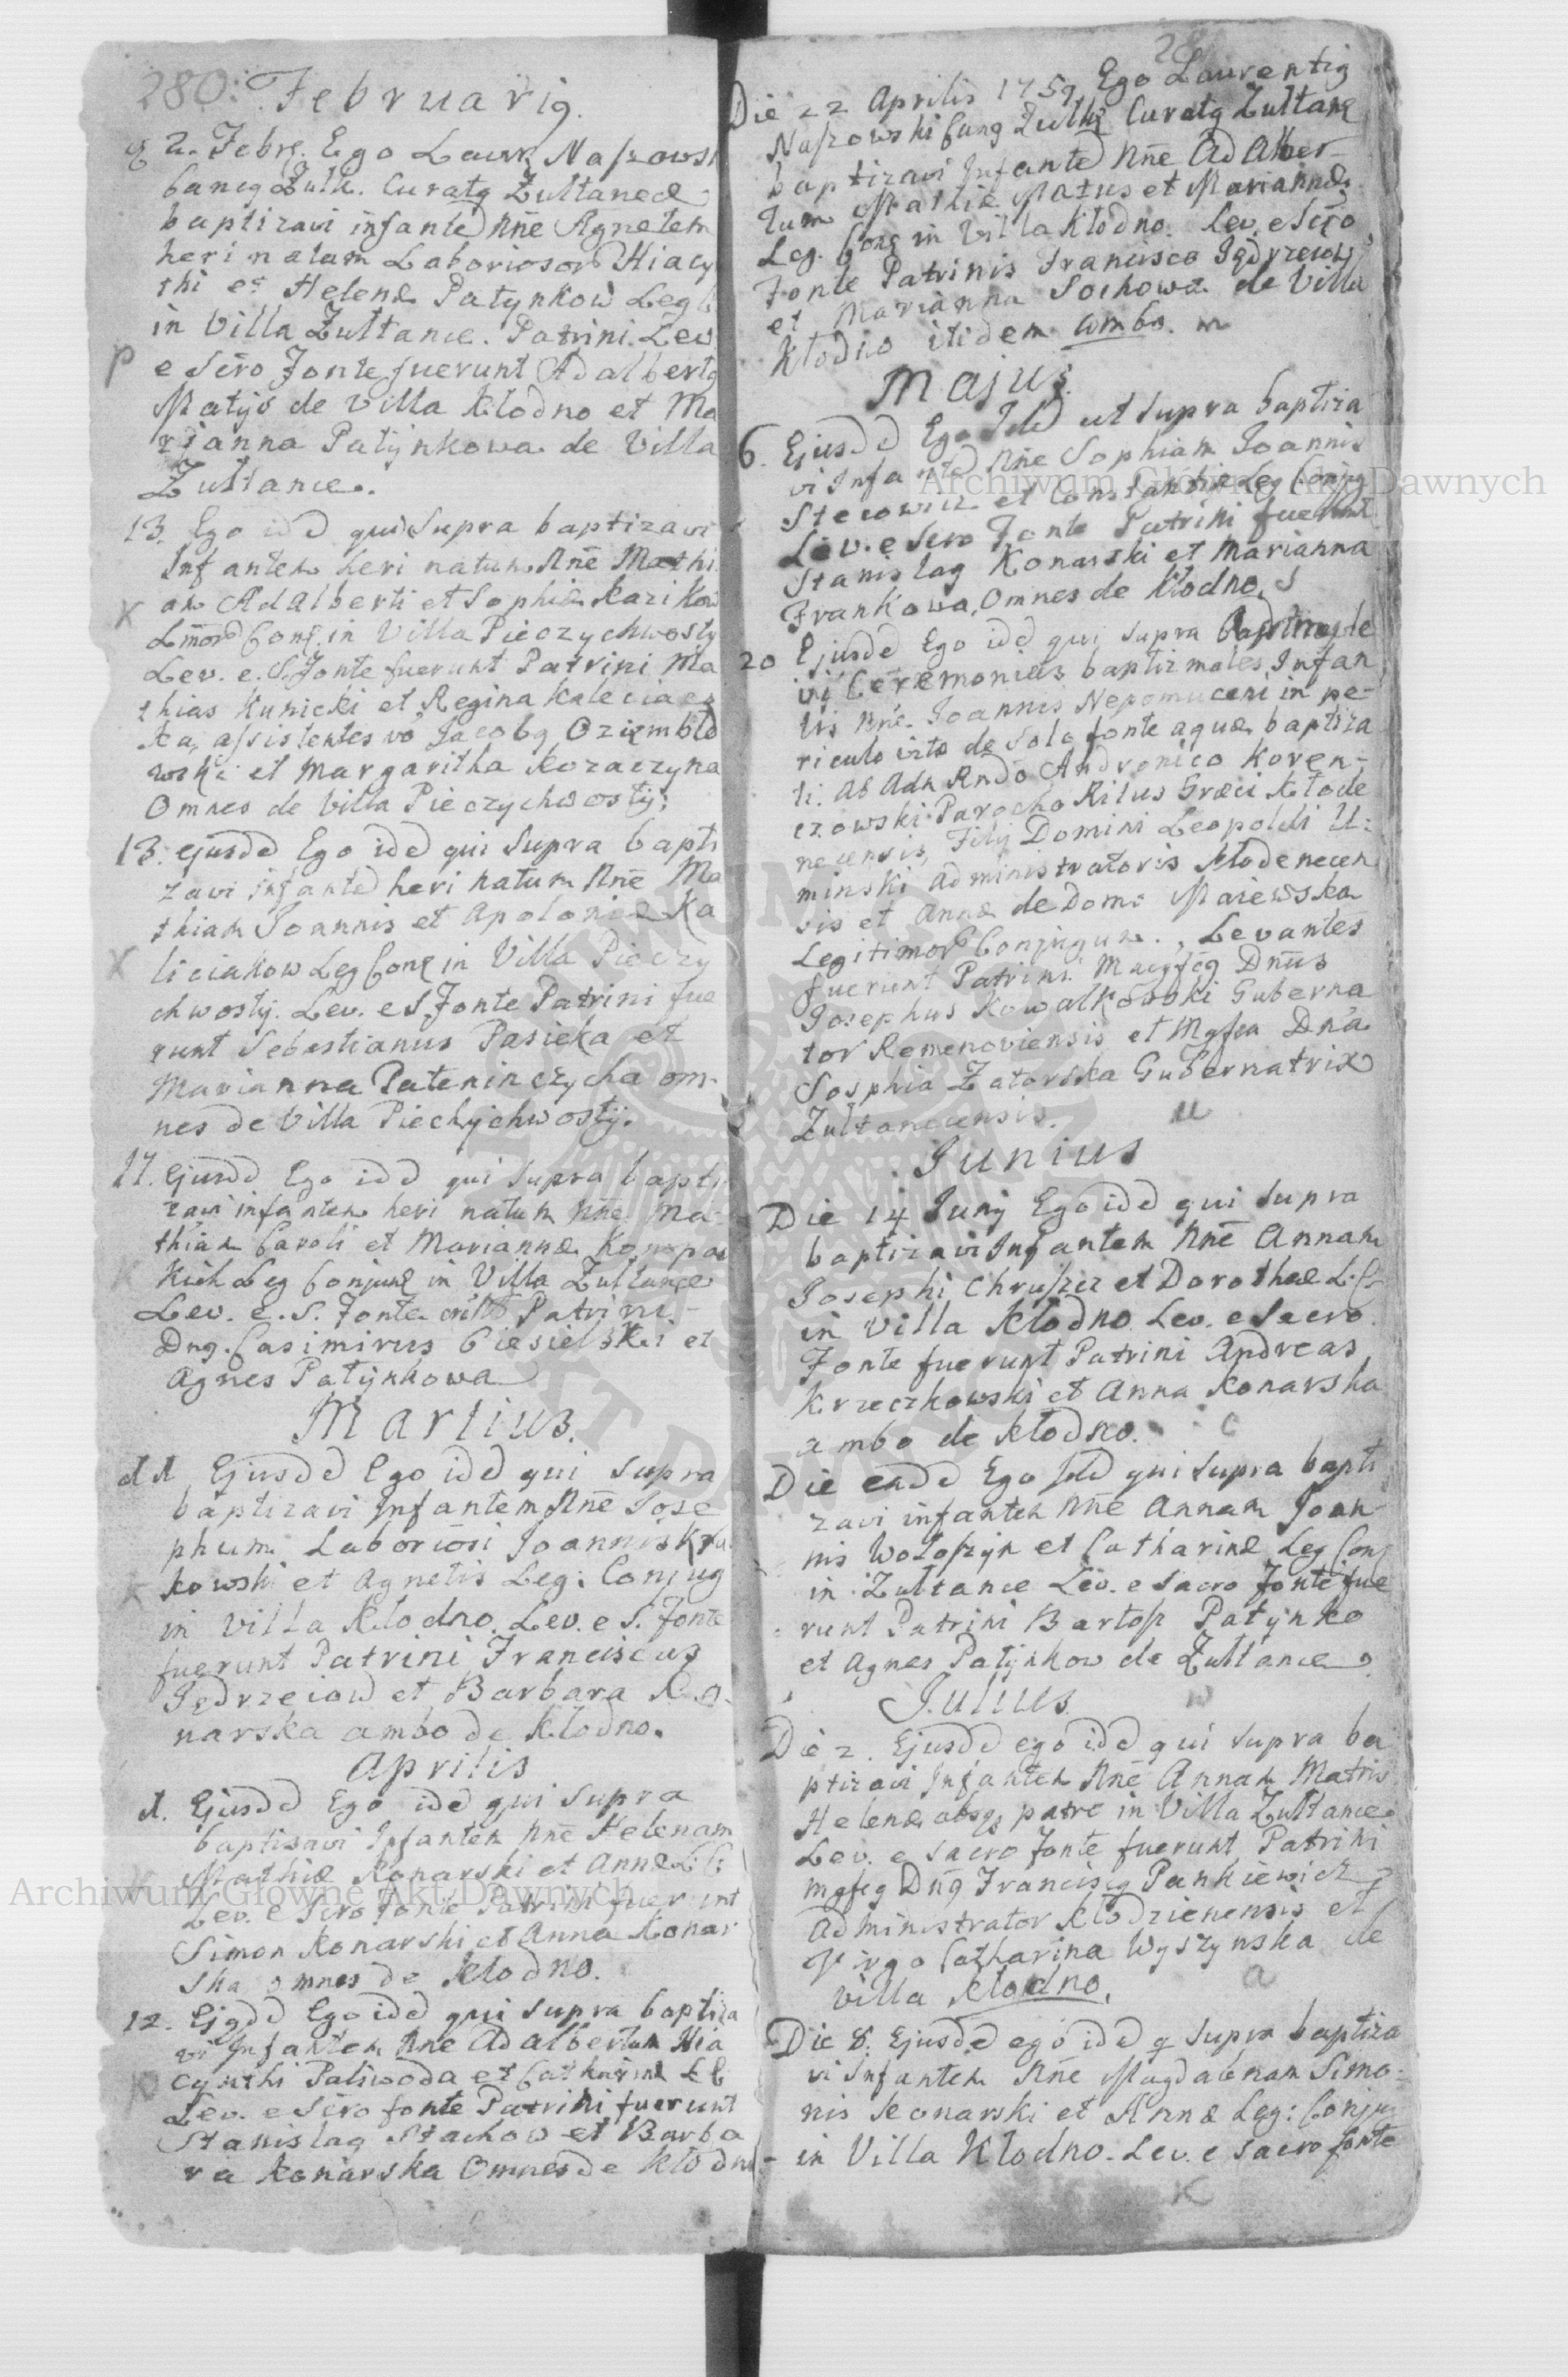 280. Februarig.
2. Febrs. Ego Laur. Naszows
Zult. Curatg Zultance
baptizavi infanted Nne Agnetem
heri natam Laboriosor Hiacy
thi et Helenæ Patynkow Leg
in Villa Zultance. Patrini Lev
p e Scro Fonte fuerunt Adalbertg
Matys de Villa Klodno et Ma
rianna Patynkowa de Villa
Zultance.
13. Ego idd qui Supra baptizavi
Infantem heri natum Nne Mathi
am Adalberti et Sophiæ Kazikow
X Conj. in Villa Pieczychwosty
Lev. e. S. Fonte fuerunt Patrini Ma
thias Kunicki et Regina
ka, assistentes vo Jacobg Oziembło
wski et Margaritha Kozaczyna
Omnes de Villa Pieczychwosty.
13. ejusdd Ego idd qui Supra bapti
zavi infanted heri natum Nne Ma
thiam Joannis et Apoloniæ Ka
X liciakow Leg Conj in Villa Pieczy
chwosty. Lev. e S. Fonte Patrini fue
runt Sebastianus Pasieka et
Marianna Pateninczycha om-
nes de Villa Piechychwosty.
17. Ejusdd Ego idd qui Supra bapti
zavi infantem heri natum Nne Ma-
thiam Caroli et Mariannæ Konopac
kich Leg Conjum in Villa Zultance
Lev. e. S. Fonte Patrini
Dng. Casimirus Ciesielski et
Agnes Patynkowa
Martius.
11 Ejusdd Ego idd qui Supra
baptizavi Infantem Nne Jose
phum Laboriosi Joannis
kowski et Agnetis Leg: Conjug
in Villa Klodno. Lev. e S. Fonte
fuerunt Patrini Franciscus
Jedrzecow et Barbara Ko-
narska ambo de Klodno.
Aprilis
1. Ejusdd Ego idd qui Supra
baptisavi Infantem Nne Helenam
Mathiæ Konarski et Annæ L C:
Lev. e Scro Fonte Patrini fuerunt
Simon Konarski et Anna Konar
ska omnes de Klodno.
12. Ejgdd Ego idd qui Supra baptiza
vi Infantem Nne Adalbertum Hia
cynthi Paliwoda et Catharinæ L C
Lev. e Scro fonte Patrini fuerunt
Stanislag Stachow et Barba
ra Konarska Omnes de Klodno
Die 22 Aprilis 1759 Ego Laurentig
Naszowski Zult Curatg Zultanc
baptizavi Infanted Nne Adalber-
tum Mathiæ Matus et Mariannæ
Leg. Conj in Villa Klodno. Lev. e Scro
Fonte Patrinis Francisco Jedrzecow
et Marianna Sochowa de Villa
Klodno itidem ambo.
Majus.
6. Ejusdd Ego Idd ut Supra baptiza
vi Infanted Nne Sophiam Joannis
Stecowicz et Constantiæ Leg Conjug
Lev. e Scro Fonte Patrini fuerunt
Stanislag Konarski et Marianna
Frankowa, Omnes de Klodno.
20 Ejusdd Ego idd qui Supra
vi Ceremonias baptizmales Infan
tis Nne. Joannis Nepomuceni in pe-
riculo vitæ de Solo fonte aquæ baptiza
ti. Ab Adm Rndo Andronico Koren-
czowski Parocho Ritus Græci Klode
necensis, Filij Domini Leopoldi U:
minski Administratoris Klodenecen
sis et Annæ de Domo Maiewska
Legitimor Conjugum., Levantes
fuerunt Patrini Magfcg Dnus
Josephus Kowalkowski Guberna
tor Remenoviensis et Mgfca Dna
Sosphia Zatorska Gubernatrix
Zultanecensis.
Junius
Die 14 Junij Ego idd qui Supra
baptizavi Infantem Nne Annam
Josephi Chruszcz et Dorotheæ L. C
in Villa Klodno. Lev. e Sacro
Fonte fuerunt Patrini Andreas
Krzeczkowski et Anna Konarska
ambo de Klodno.
Die eadd Ego Idd qui Supra bapti
zavi infantem Nne Annam Joan
nis Woloszyn et Catharinæ Leg Conj
in Zultance Lev. e Sacro Fonte fue
runt Patrini Bartosz Patynko
et Agnes Patynkow de Zultance
Julius.
Die 2. Ejusdd ego idd qui Supra ba
ptizavi Infantem Nne Annam Matris
Helenæ absq patre in Villa Zultance
Lev. e Sacro Fonte fuerunt Patrini
mgfcg Dng Franciscg Pankiewicz
Administrator Klodzienensis et
Virgo Catharina Wyszynska de
Villa Klodno.
Die 8. Ejusdd ego idd q Supra baptiza
vi Infantem Nne Magdalenam Simo-
nis Konarski et Annæ Leg: Conju
in Villa Klodno. Lev. e Sacro fonte
Archiwum Główne Akt Dawnych
Archiwum Główne Akt Dawnych